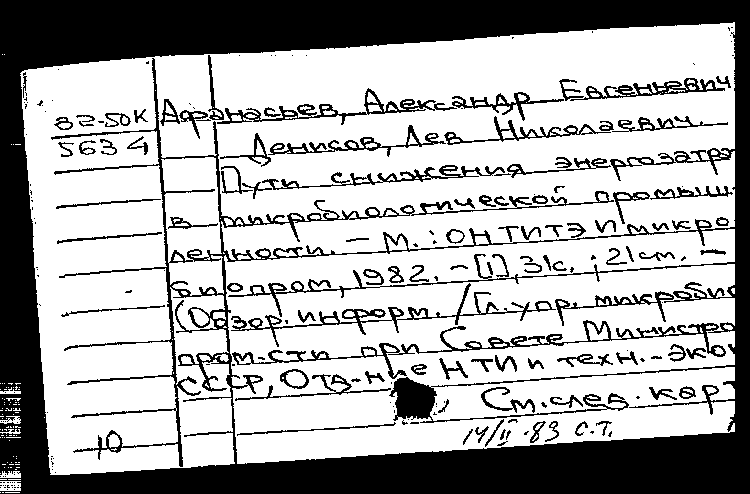 82-50К Афанасьев, Александр Евгеньевич
5634 Денисов, Лев Николаевич.
Пути снижения энергозатра
в микробиологической промыш
ленности. – М. : ОНТИТЭИмикро
биопром, 1982. – [1], 31с. ; 21см. –
(Обзор. информ. / Гл. упр. микробио
пром-сти при Совете Министро
СССР, Отд-ние НТИ и техн.-экон
См. след. карт
10 14/II-83 С.Т.